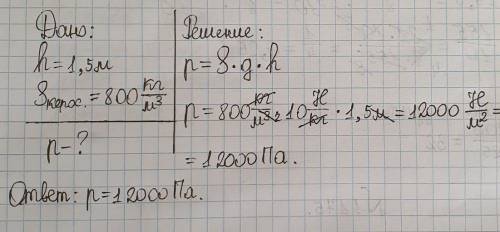 Дано:
h=1,5м
ρкерос.=800 кг/м³
p-?
Решение:
p=ρ·g·h
p=800 кг/м³ · 10 Н/кг · 1,5м=12000 Н/м² =
=12000Па.
Ответ: p=12000Па.